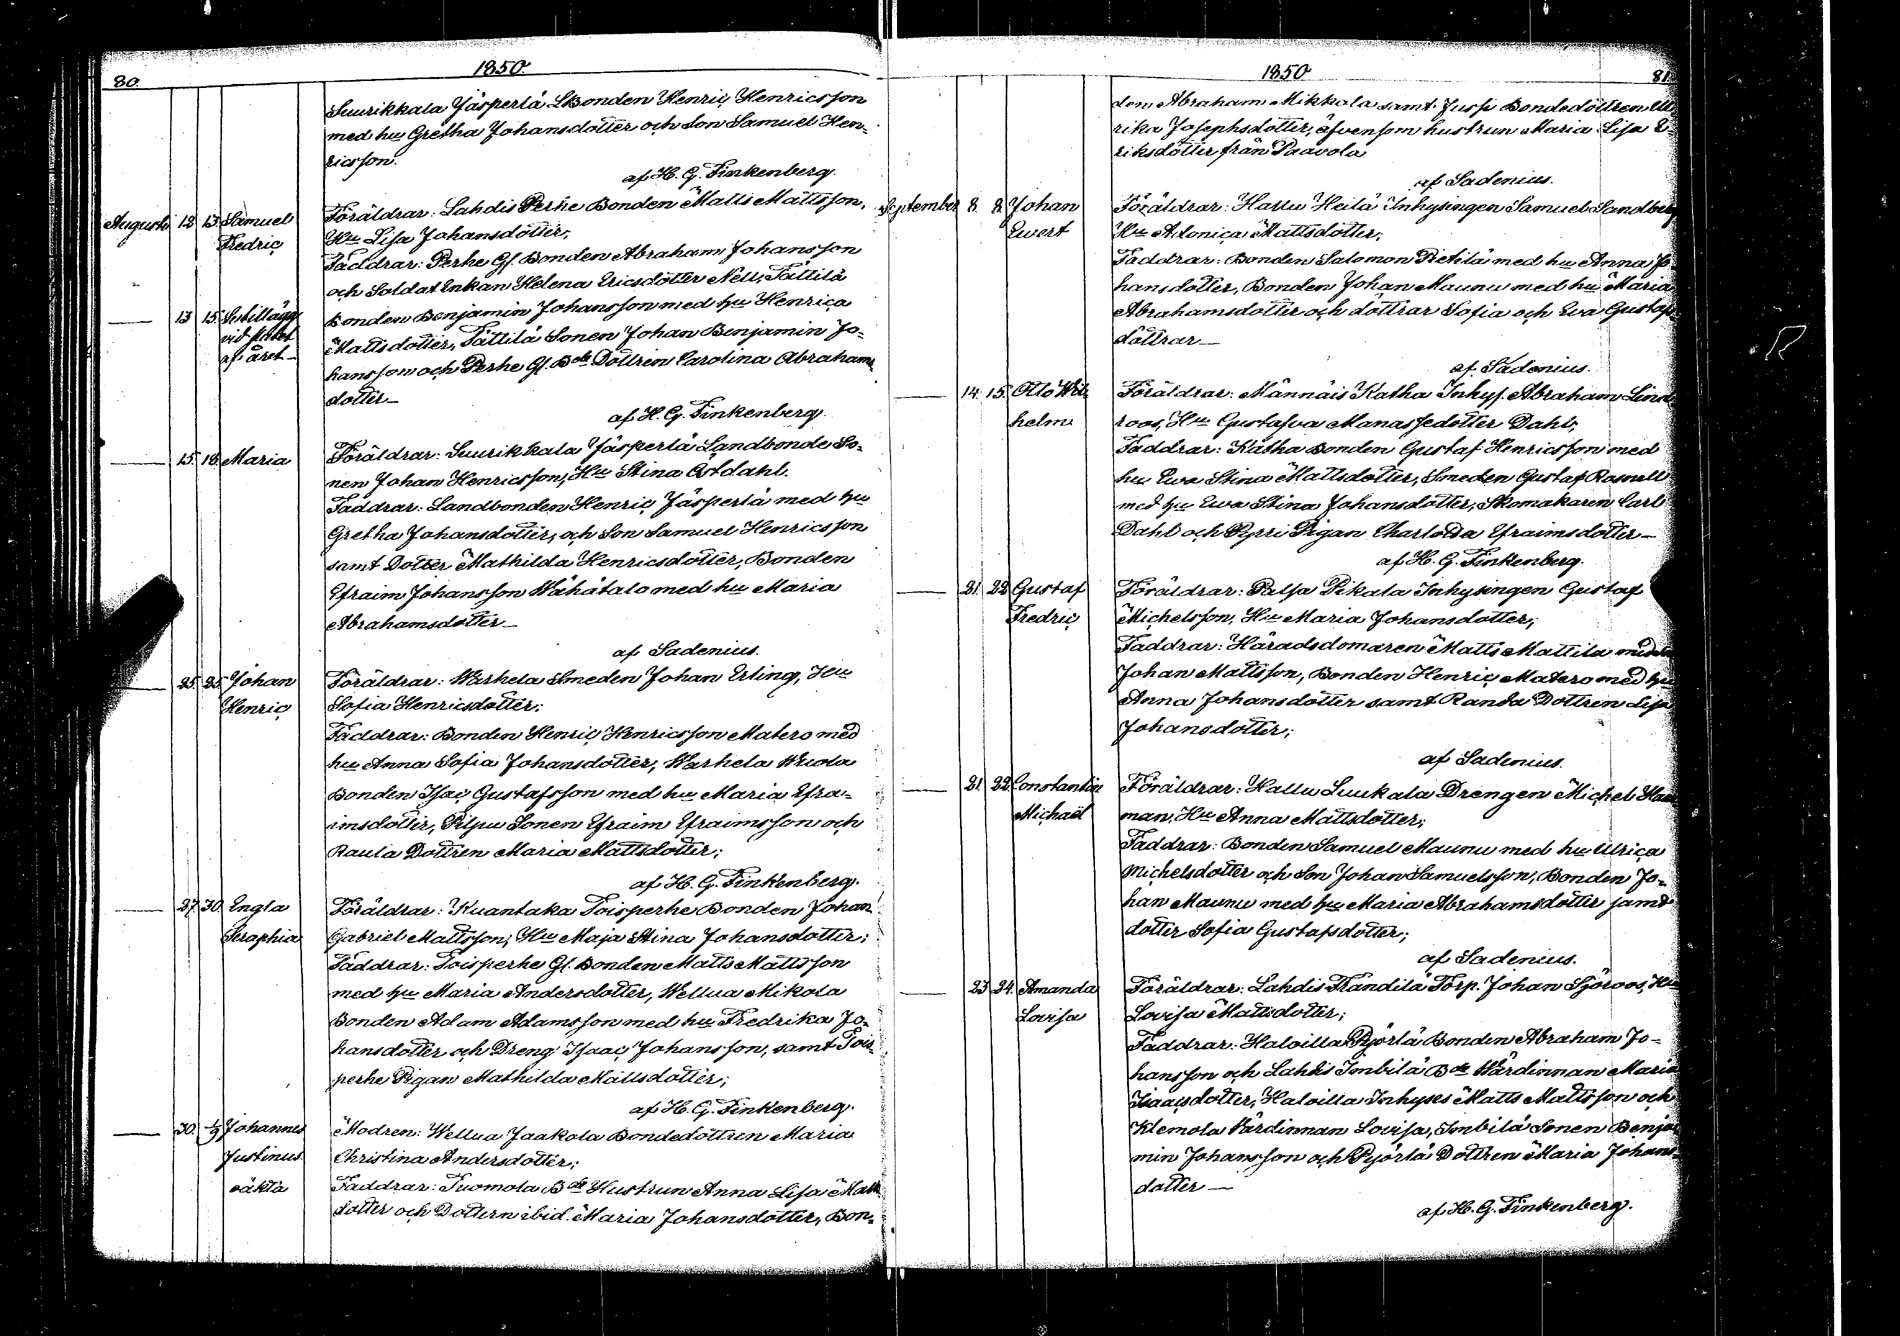 80.
1850.
Suurikkala Jäsperlä LBonden Henric Henricsson
med hu Gretha Johansdotter och Son Samuel Hen-
ricsson.
af H. G. Finkenberg.
Augusti 12 13 Samuel Fredric
Föräldrar: Lahdis Perhe Bonden Matts Mattsson,
Hu Lisa Johansdotter;
Faddrar: Perhe Gl. Bonden Abraham Johansson
och Soldat Enkan Helena Ericsdotter Nell, Tättilä
13 15 Se tillägg vid slutet af året
Bonden Benjamin Johansson med hu Henrica
Mattsdotter, Tättilä Sonen Johan Benjamin Jo-
hansson och Perhe Gl. Bde Dottren Carolina Abrahams
dotter
af H. G. Finkenberg.
15 18 Maria
Föräldrar: Suurikkala Jäsperlä Landbonde So-
nen Johan Henricsson, Hu Stina Östdahl.
Faddrar: Landbonden Henric Jäsperlä med hu
Gretha Johansdotter, och Son Samuel Henricsson
samt Dotter Mathilda Henricsdotter, Bonden
Efraim Johansson Wähätalo med hu Maria
Abrahamsdotter
af Sadenius.
25. 25. Johan Henric
Föräldrar: Warhela Smeden Johan Erling, Hu
Sofia Henricsdotter;
Faddrar: Bonden Henric Henricsson Matero med
hu Anna Sofia Johansdotter, Warhela Wuola
Bonden Isac Gustafsson med hu Maria Efra-
imsdotter, Pilpu Sonen Efraim Efraimsson och
Raula Dottren Maria Mattsdotter;
af H. G. Finkenberg.
27. 30. Engla Seraphia
Föräldrar: Kuantaka Toisperhe Bonden Johan
Gabriel Mattsson; Hu Maja Stina Johansdotter;
Faddrar: Toisperhe Gl. Bonden Matts Mattsson
med hu Maria Andersdotter, Wellua Mikola
Bonden Adam Adamsson med hu Fredrika Jo-
hansdotter och Dreng Isaac Johansson, samt Tois-
perhe Pigan Mathilda Mattsdotter;
af H. G. Finkenberg.
30. 1/9 Johannes Justinus oäkta
Modren: Wellua Jaakola Bondedottren Maria
Christina Andersdotter;
Faddrar: Tuomola Bde Hustrun Anna Lisa Matts
dotter och Dottern ibid. Maria Johansdotter, Bon-
1850
81.
den Abraham Mikkola samt Jussi Bondedottren Ul
rika Josephsdotter, äfvensom hustrun Maria Lisa E-
riksdotter från Paavola
af Sadenius.
September 8. 8. Johan Evert
Föräldrar: Hallu Heilä Inhysingen Samuel Sandberg
Hu Adonica Mattsdotter;
Faddrar: Bonden Salomon Pietilä med hu Anna Jo
hansdotter, Bonden Johan Maunu med hu Maria
Abrahamsdotter och döttrar Sofia och Eva Gustafs
döttrar
af Sadenius.
14. 15. Otto Wil- helm
Föräldrar: Männäis Katha Inhys. Abraham Lind
roos, Hu Gustafva Manassedotter Dahl;
Faddrar: Katha Bonden Gustaf Henricsson med
hu Ewa Stina Mattsdotter, Smeden Gustaf Rosnell
med hu Ewa Stina Johansdotter, Skomakaren Carl
Dahl och Pyrri Pigan Charlotta Efraimsdotter
af H. G. Finkenberg.
21. 22 Gustaf Fredric
Föräldrar: Palsa Pikala Inhysingen Gustaf
Michelsson, Hu Maria Johansdotter;
Faddrar: Häradsdomaren Matts Mattila med
Johan Mattsson, Bonden Henric Matero med hu
Anna Johansdotter samt Randa Dottren Lisa
Johansdotter;
af Sadenius.
21 22 Constantin Michaël
Föräldrar: Hallu Luukala Drengen Michel
man, Hu Anna Mattsdotter;
Faddrar: Bonden Samuel Maunu med hu Ulrica
Michelsdotter och Son Johan Samuelsson, Bonden Jo-
han Maunu med hu Maria Abrahamsdotter jamt
dotter Sofia Gustafsdotter;
af Sadenius.
23 24. Amanda Lovisa
Föräldrar: Lahdis Frändilä Torp. Johan Sjöroos, Hu
Lovisa Mattsdotter;
Faddrar: Haloilla Pyörlä Bonden Abraham Jo-
hansson och Lahdis Imbilä Bde Wärdinnan Maria
Isaacsdotter, Haloilla Inhyses Matts Mattsson och
Klemola Wärdinnan Lovisa, Imbilä Sonen Benja
min Johansson och Pyörlä Dottren Maria Johans-
dotter
af H. G. Finkenberg.